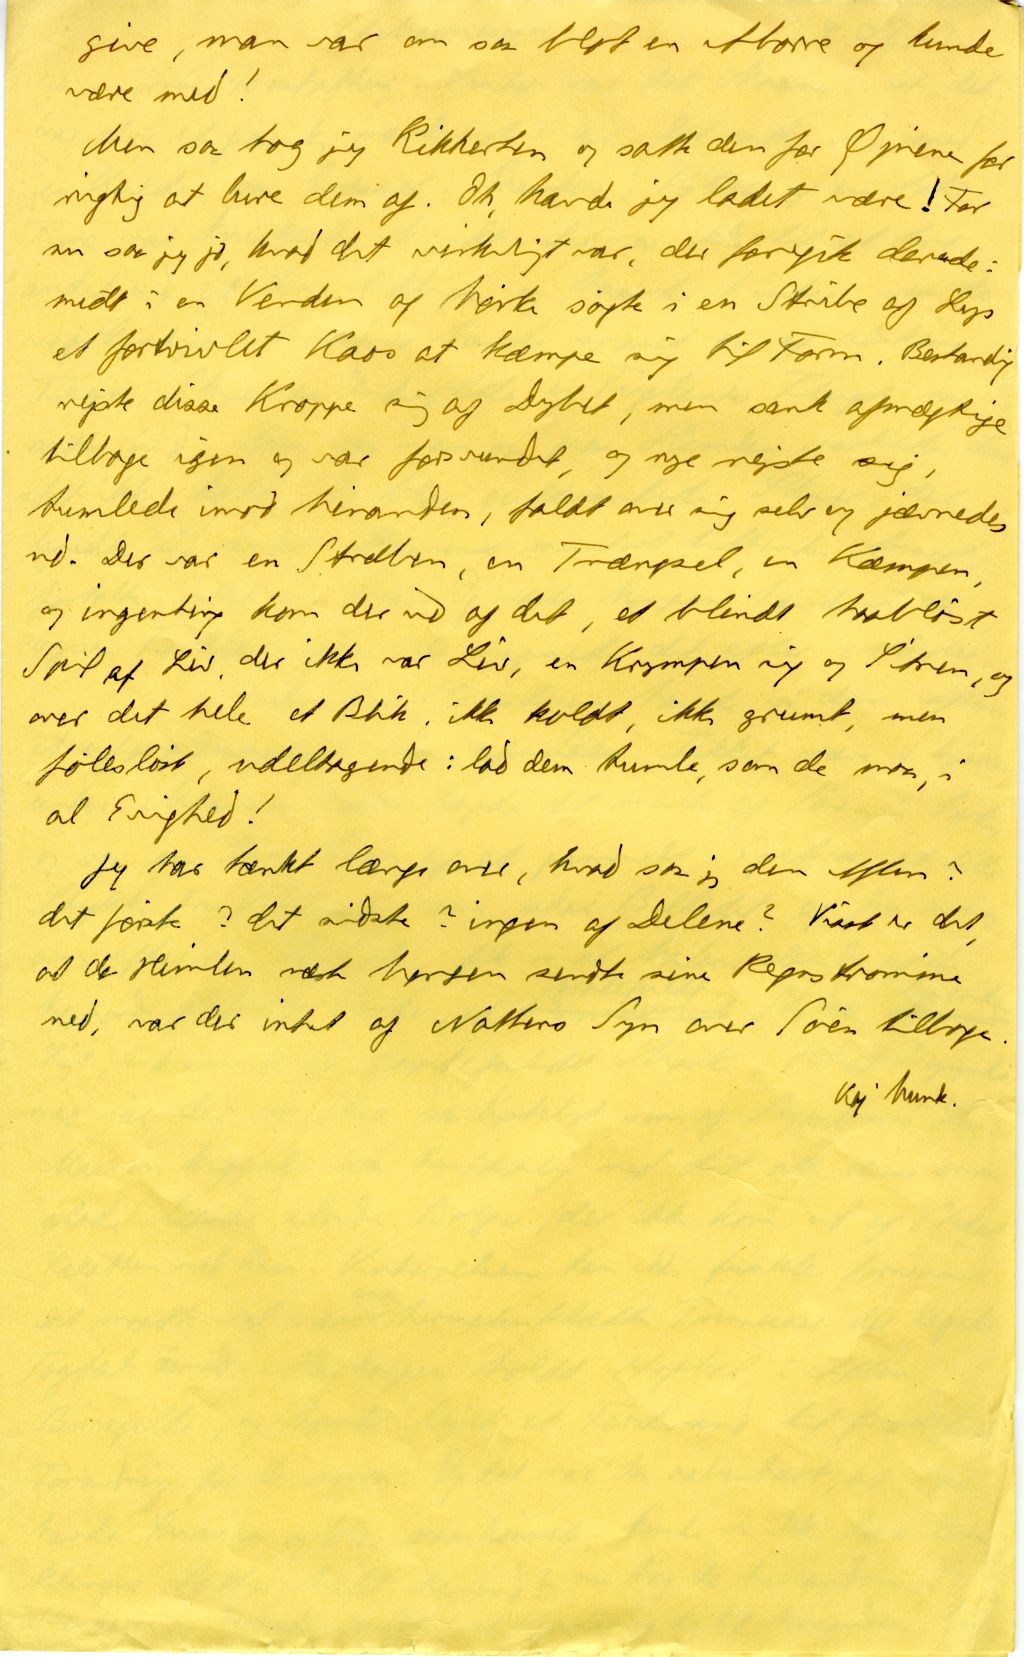 give, man var om saa blot en Aborre og kunde
være med!
Men saa tog jeg Kikkerten og satte den for Øjnene for
rigtig at lure dem af. Åh, havde jeg ladet være! For
nu saa jeg jo, hvad det virkeligt var, der foregik derude:
midt i en Verden af Mørke søgte i en Stribe af Lys
et fortvivlet Kaos at kæmpe sig til Form. Bestandig
rejste disse Kroppe sig af Dybet, men sank afmægtige
tilbage igen og var forsvundet, og nye rejste sig,
tumlede imod hinanden, faldt over sig selv og jævnedes
ud. Der var en Stræben, en Trængsel, en Kæmpen,
og ingenting kom der ud af det, et blindt haabløst
Spil af Liv, der ikke var Liv, en Krympen sig og Sitren, og
over det hele et Blik, ikke koldt, ikke grumt, men
følesløst, udeltagende: lad dem tumle, som de maa, i
al Evighed!
Jeg har tænkt længe over, hvad saa jeg den Aften?
det første? det sidste? ingen af Delene? Vist er det,
at da Himlen næste Morgen sendte sine Regnstrømme
ned, var der intet af Nattens Syn over Søen tilbage.
Kaj Munk.